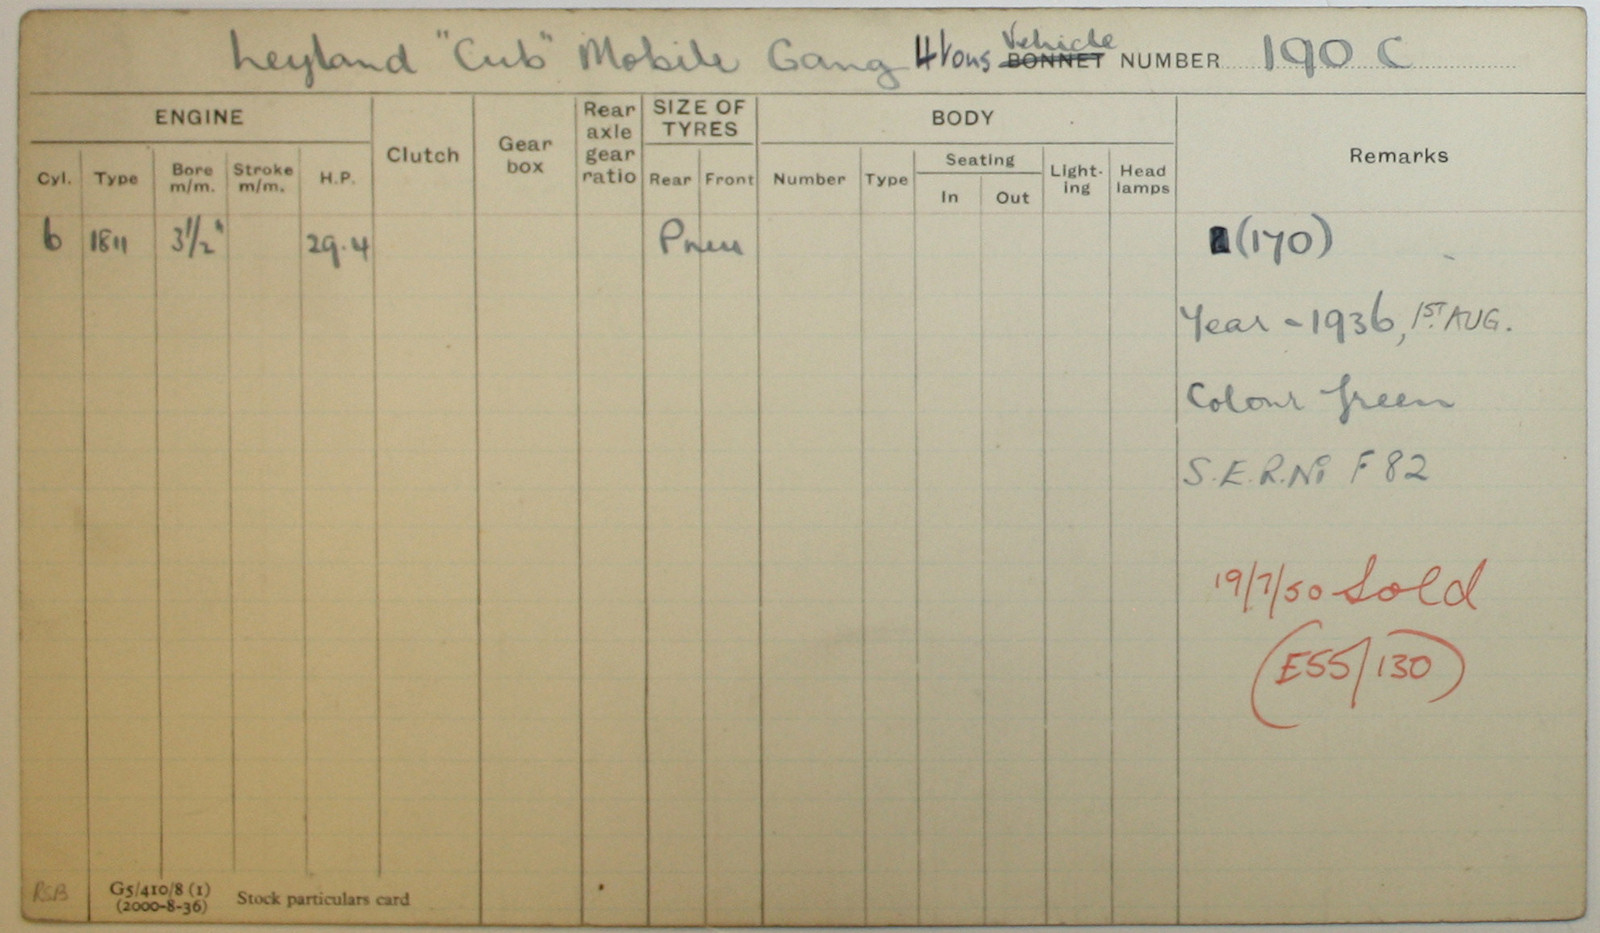 Leyland "Cub" Mobile Gang 4 tons Vehicle BONNET NUMBER 190 C
ENGINE Clutch Gear box Rear axle gear ratio SIZE OF TYRES BODY Remarks
Cyl. Type Bore m/m. Stroke m/m. H.P. Rear Front Number Type Seating In Out Light-ing Head lamps
6 1811 3½" 29.4 Pneu (170)
Year - 1936, 1ST AUG.
Colour Green
S.E.R.No F 82
19/7/50 Sold
(E55/130)
RSB G5/410/8 (1) Stock particulars card
(2000-8-36)